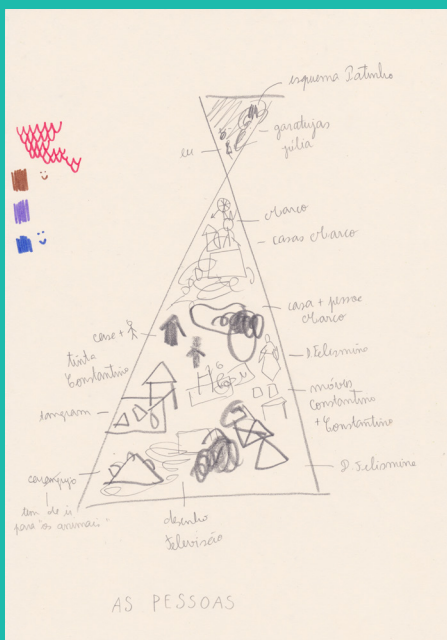 esquema Patinho
garatujas
júlia
eu
Marco
casas Marco
casa + pessoa
Marco
case +
tinta
Constantino
D. Felismina
móveis
Constantino
+ Constantino
tangram
D. Felismina
caranguejo
tem de ir
para "os animais"
desenho
televisão
AS PESSOAS